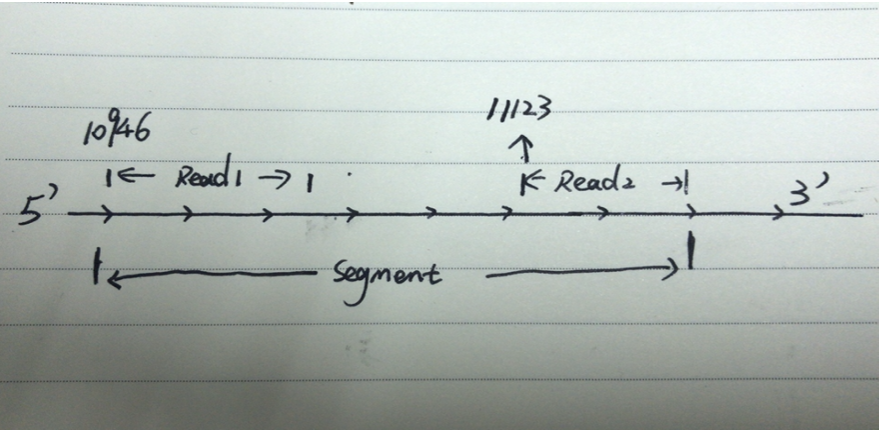 10946
11123
Read1
Read2
5’
3’
Segment